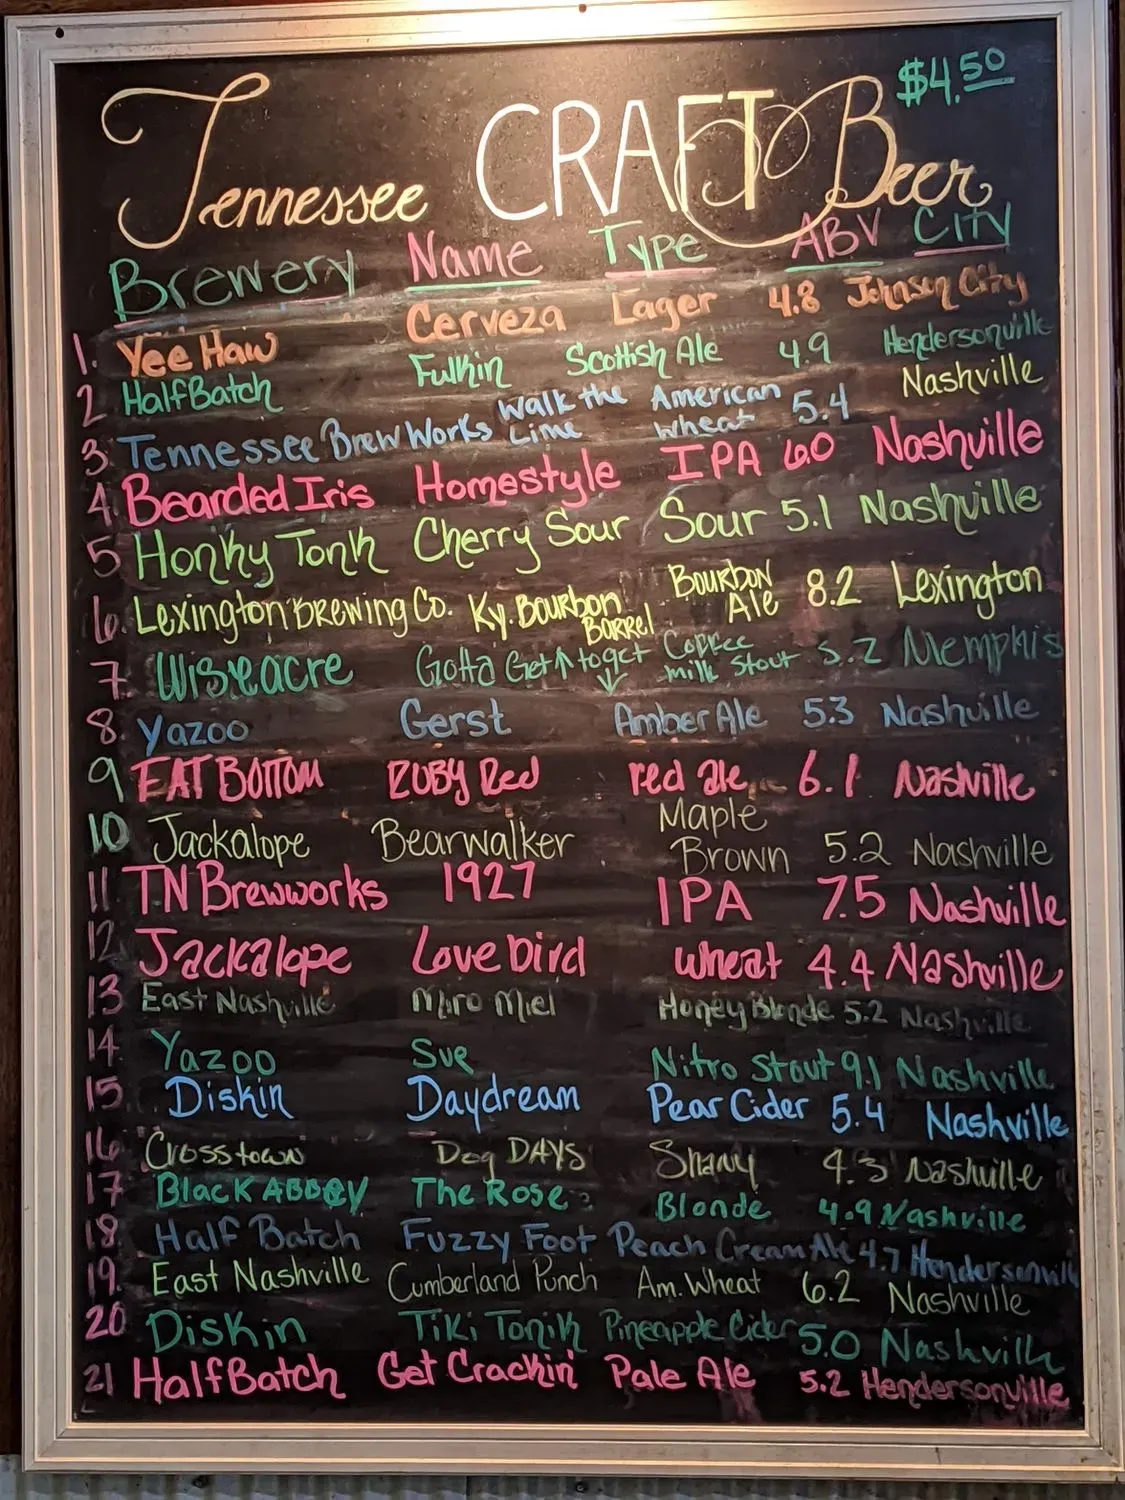 $4.50
Tennessee CRAFT Beer
Brewery Name Type ABV City
1. Yee Haw Cerveza Lager 4.8 Johnson City
2 Half Batch Fulkin Scottish Ale 4.9 Hendersonville
3. Tennessee Brew Works Walk the Lime American Wheat 5.4 Nashville
4. Bearded Iris Homestyle IPA 6.0 Nashville
5 Honky Tonk Cherry Sour Sour 5.1 Nashville
6. Lexington Brewing Co. Ky. Bourbon Barrel Bourbon Ale 8.2 Lexington
7. Wiseacre Gotta Get ↑ to get ↓ Coffee Milk Stout 5.2 Memphis
8. Yazoo Gerst Amber Ale 5.3 Nashville
9 FAT BOTTOM RUBY Red red ale 6.1 Nashville
10 Jackalope Bearwalker Maple Brown 5.2 Nashville
11 TN Brewworks 1927 IPA 7.5 Nashville
12 Jackalope Lovebird wheat 4.4 Nashville
13 East Nashville Miro Miel Honey Blonde 5.2 Nashville
14 Yazoo Sue Nitro Stout 9.1 Nashville
15 Diskin Daydream Pear Cider 5.4 Nashville
16 Crosstown Dog DAYS 4.3 Nashville
17 Black ABBEY The Rose Blonde 4.9 Nashville
18 Half Batch Fuzzy Foot Peach Cream Ale 4.7 Hendersonville
19. East Nashville Cumberland Punch Am. Wheat 6.2 Nashville
20 Diskin Tiki Tonik Pineapple Cider 5.0 Nashville
21 Half Batch Get Crackin' Pale Ale 5.2 Hendersonville